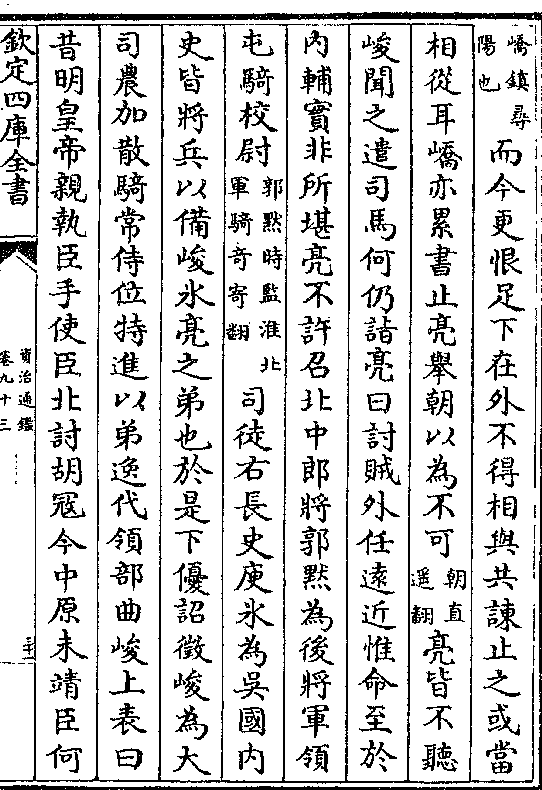 嶠鎮尋陽也而今更恨足下在外不得相與共諫止之或當
相從耳嶠亦累書止亮舉朝以為不可朝直遥翻亮皆不聽
峻聞之遣司馬何仍詣亮曰討賊外任遠近惟命至於
内輔實非所堪亮不許召北中郎將郭黙為後將軍領
屯騎校尉郭黙時監淮北軍騎竒寄翻司徒右長史庾氷為吳國内
史皆將兵以備峻氷亮之弟也於是下優詔徵峻為大
司農加散騎常侍位特進以弟逸代領部曲峻上表曰
昔明皇帝親執臣手使臣北討胡寇今中原未靖臣何
欽定四庫全書
資治通鑑
卷九十三